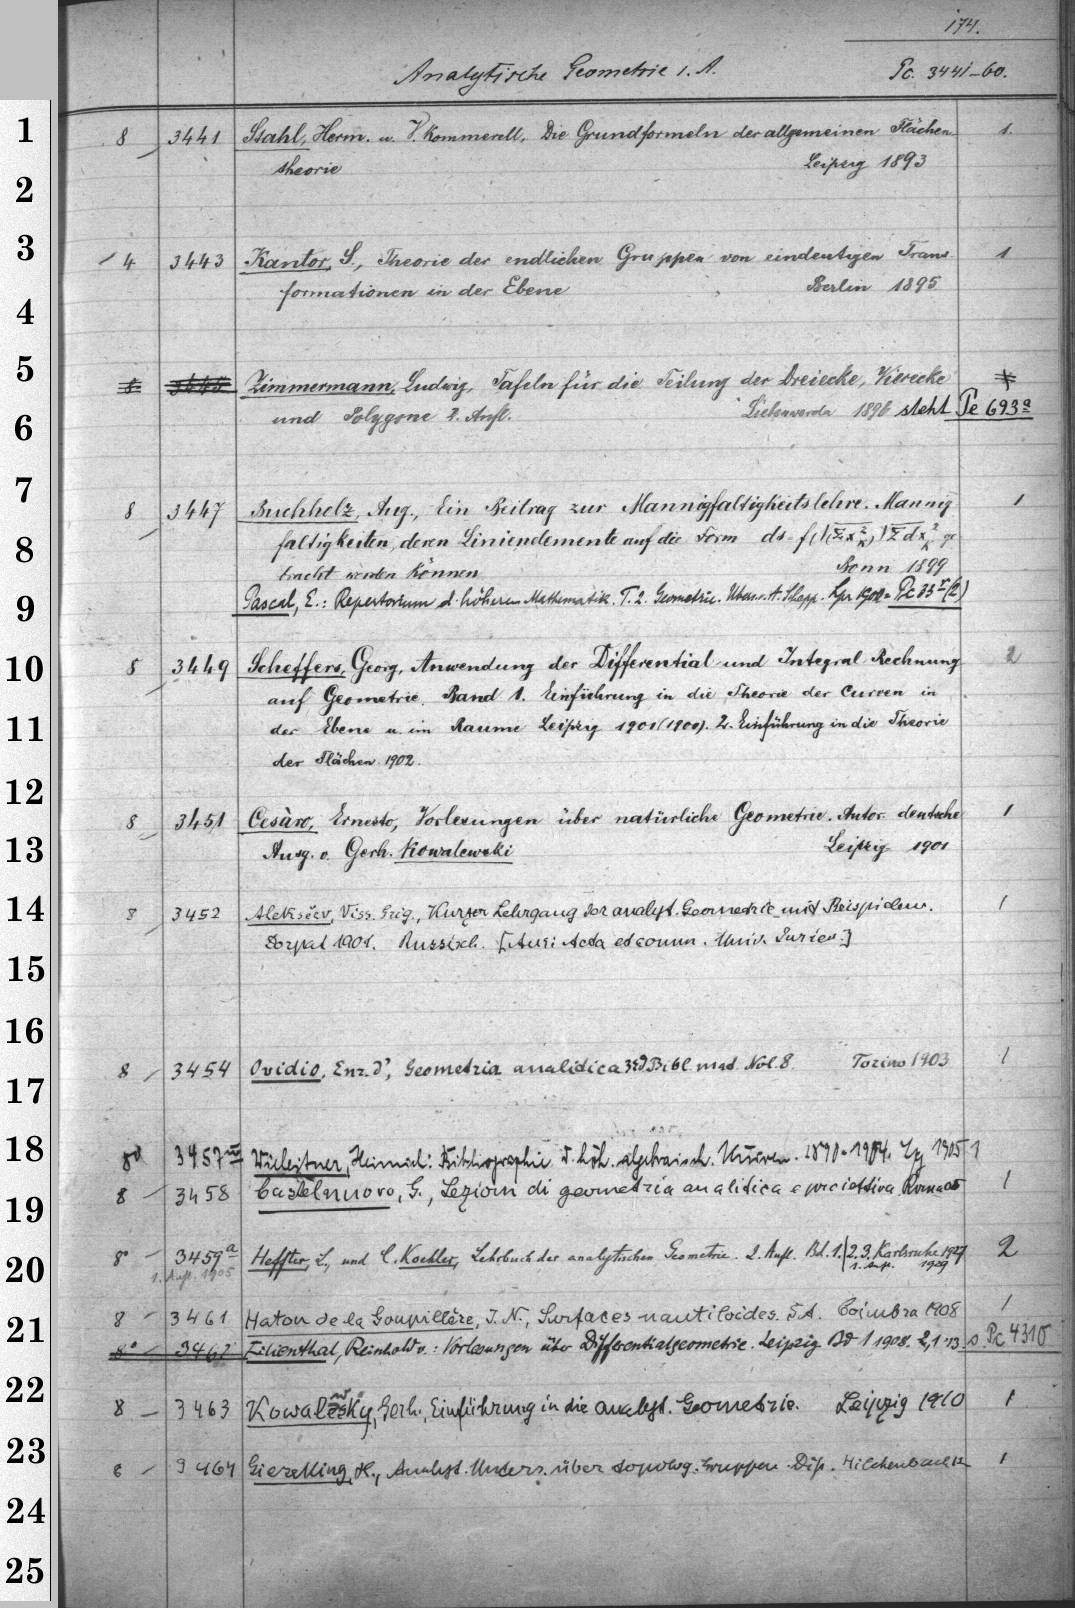 174.
Analytische Geometrie i. A. Pc. 3441-60.
1 8 3441 Stahl, Herm. u. V. Kommerell, Die Grundformeln der allgemeinen Flächen- 1.
theorie Leipzig 1893
2
3 4 3443 Kantor, S., Theorie der endlichen Gruppen von eindeutigen Trans- 1
formationen in der Ebene Berlin 1895
4
5 8 3445 Zimmermann, Ludwig, Tafeln für die Teilung der Dreiecke, Vierecke 1
6 und Polygone 2. Aufl. Liebenwerda 1896 steht Pe 693a
7 8 3447 Buchholz, Aug., Ein Beitrag zur Mannigfaltigkeitslehre. Mannig- 1
8 faltigkeiten, deren Linienelemente auf die Form ds = f(√Σx²κ) √Σdx²κ ge-
bracht werden können Bonn 1899
9 Pascal, E.: Repertorium d. höheren Mathematik. T. 2. Geometrie. Übers. v. A. Schepp. Lpz 1902 = Pc 85 (2)
10 8 3449 Scheffers, Georg, Anwendung der Differential und Integral Rechnung 2
auf Geometrie. Band 1. Einführung in die Theorie der Curven in
11 der Ebene u. im Raume Leipzig 1901 (1900). 2. Einführung in die Theorie
der Flächen 1902.
12
8 3451 Cesàro, Ernesto, Vorlesungen über natürliche Geometrie. Autor. deutsche 1
13 Ausg. v. Gerh. Kowalewski Leipzig 1901
14 8 3452 Aleksěev, Viss. Grig., Kurzer Lehrgang der analyt. Geometrie mit Beispielen. 1
Dorpat 1901. Russisch. [Aus: Acta et comm. Univ. Juriev.]
15
16
17 8 3454 Ovidio, Enr. d', Geometria analitica 3ed Bibl. mat. Vol. 8. Torino 1903 1
18 80 3457 Wieleitner, Heinrich: Bibliographie d. höh. algebraisch. Kurven. 1890-1904. Lpg 1905 1
19 8 3458 Castelnuovo, G., Lezioni di geometria analitica e proiettiva Roma 05 1
20 8° 3459a Heffter, L., und C. Koehler, Lehrbuch der analytischen Geometrie. 2. Aufl. Bd. 1. | 2.3. Karlsruhe 1927 2
1. Aufl. 1905 1. Aufl. 1929
21 8 3461 Haton de la Goupillère, J. N., Surfaces nautiloides. S.A. Coimbra 1908 1
8° 3462 Lilienthal, Reinhold v.: Vorlesungen über Differentialgeometrie. Leipzig Bd 1 1908. 2,1 '13. s. Pc 4310
22 8 3463 Kowalewsky, Gerh., Einführung in die analyt. Geometrie. Leipzig 1910 1
23 8 3464 Gieseking, H., Analyt. Unters. über topolog. Gruppen. Diss. Hilchenbach 12 1
24
25